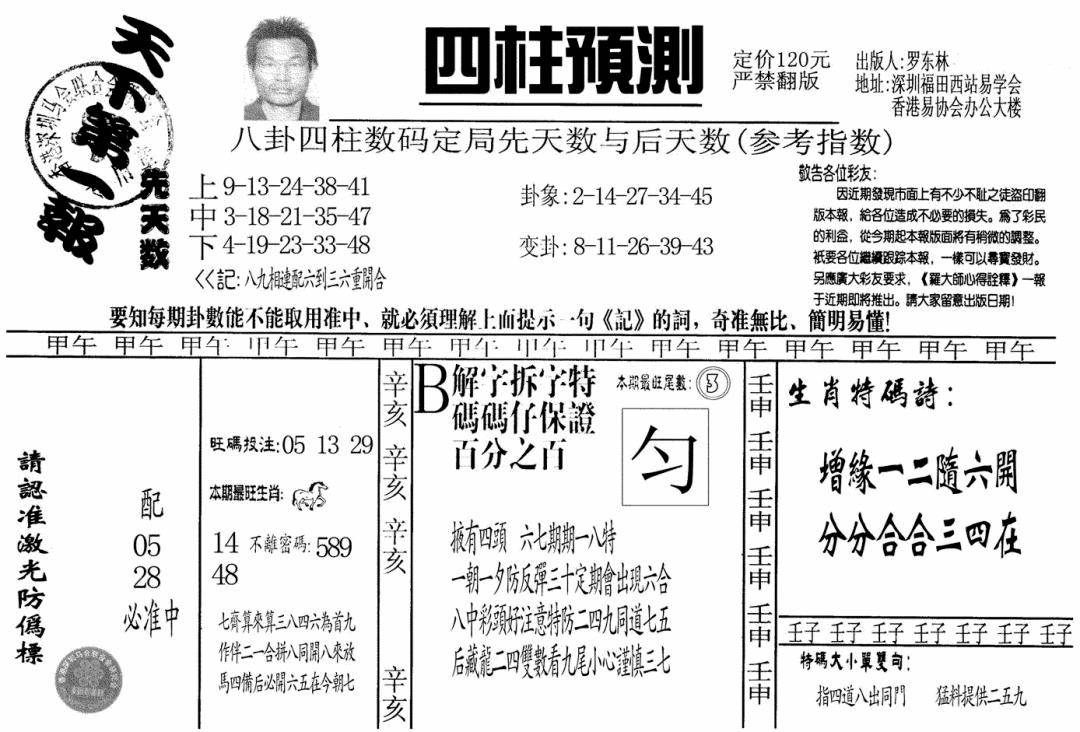 天下第一報
四柱預測
定价120元
严禁翻版
出版人:罗东林
地址:深圳福田西站易学会
香港易协会办公大楼
八卦四柱数码定局先天数与后天数(参考指数)
先天数
上 9-13-24-38-41
中 3-18-21-35-47
下 4-19-23-33-48
<<記:八九相連配六到三六重開合
卦象:2-14-27-34-45
变卦:8-11-26-39-43
敬告各位彩友:
因近期發現市面上有不少不耻之徒盜印翻
版本報，給各位造成不必要的損失。爲了彩民
的利益，從今期起本報版面將有稍微的調整。
衹要各位繼續跟踪本報，一樣可以尋寶發財。
另應廣大彩友要求，《羅大師心得詮釋》一報
于近期即將推出。請大家留意出版日期!
要知每期卦數能不能取用准中、就必須理解上面提示一句《記》的詞，奇准無比、簡明易懂!
甲午 甲午 甲午 甲午 甲午 甲午 甲午 甲午 甲午 甲午 甲午 甲午 甲午 甲午 甲午
請認准激光防僞標
配
05
28
必准中
旺碼投注:05 13 29
本期最旺生肖:
14 不離密碼:589
48
七齊算來算三八四六為首九
作伴二一合拼八同開八來放
馬四備后必開六五在今朝七
辛亥
辛亥
辛亥
辛亥
B解字拆字特
碼碼仔保證
百分之百
本期最旺尾數:3
匀
掖有四頭 六七期期一八特
一朝一夕防反彈三十定期會出現六合
八中彩頭好注意特防二四九同道七五
后藏龍二四雙數看九尾小心謹慎三七
壬申
壬申
壬申
壬申
壬申
壬申
生肖特碼詩:
增緣一二隨六開
分分合合三四在
壬子 壬子 壬子 壬子 壬子 壬子 壬子
特碼大小單雙句:
指四道八出同門 猛料提供二五九